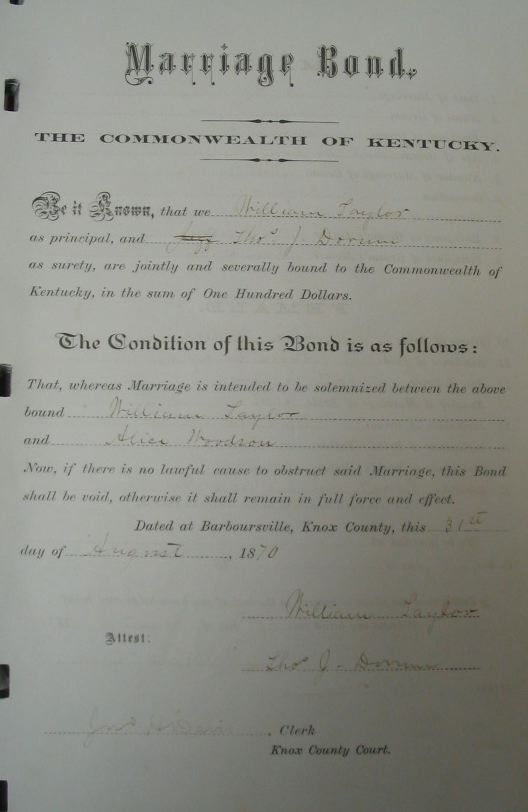 Marriage Bond.
THE COMMONWEALTH OF KENTUCKY.
Be it Known, that we William Taylor
as principal, and Thos J Dorum
as surety, are jointly and severally bound to the Commonwealth of
Kentucky, in the sum of One Hundred Dollars.
The Condition of this Bond is as follows:
That, whereas Marriage is intended to be solemnized between the above
bound William Taylor
and Alice Woodson
Now, if there is no lawful cause to obstruct said Marriage, this Bond
shall be void, otherwise it shall remain in full force and effect.
Dated at Barboursville, Knox County, this 31st
day of August, 1870
William Taylor
Attest:
Thos J. Dorum
Jno , Clerk
Knox County Court.